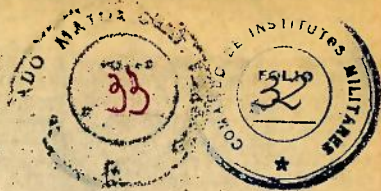 ADO MAYOR
33
COMANDO DE INSTITUTOS MILITARES
FOLIO
32